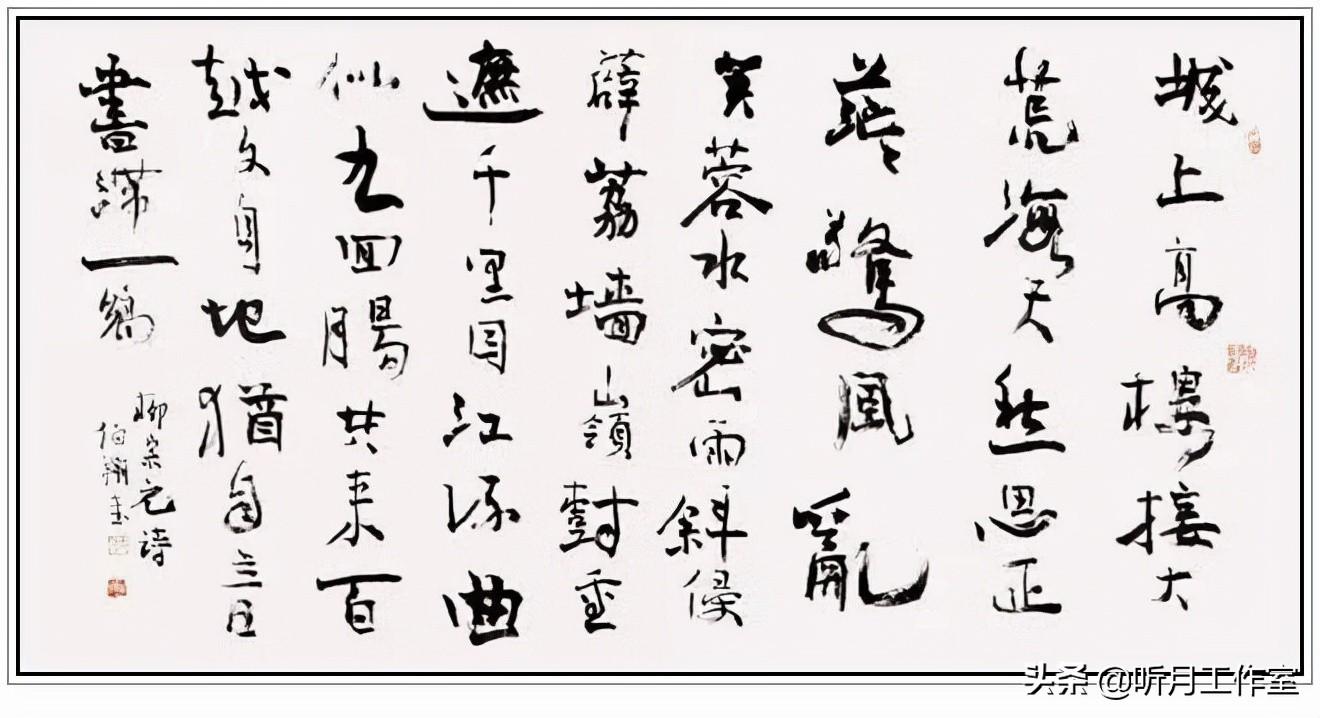 城上高樓接大
荒海天愁思正
茫々驚風亂
芙蓉水密雨斜侵
薜荔墙嶺樹重
遮千里目江流曲
似九回腸共来百
越文身地猶自音
書滯一鄉
柳宗元詩
伯翔書
头条 @听月工作室